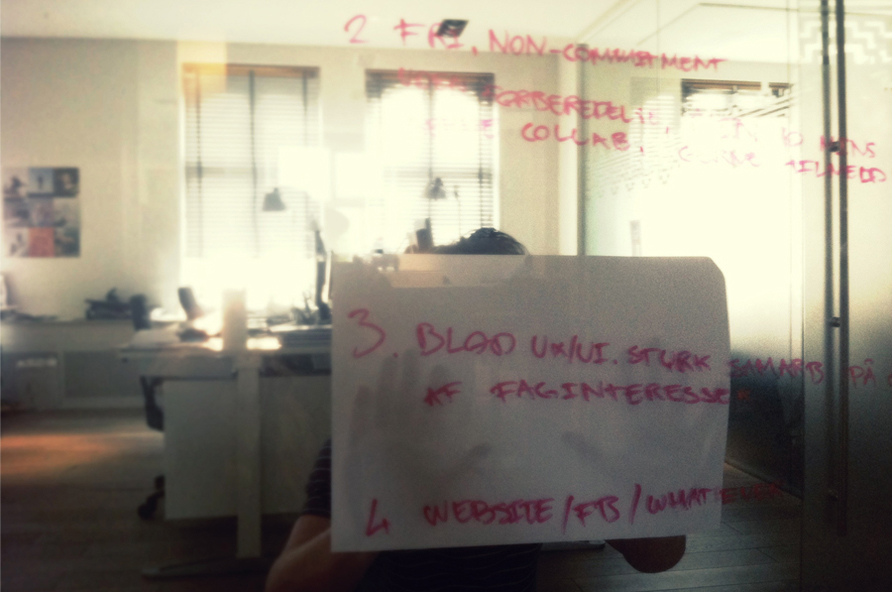 2 FRI, NON-COMMITMENT
FORBEREDELSE, 10 MINS
COLLAB,
3. BLØD UX/UI. STYRK SAMARB PÅ
AF FAGINTERESSER
4 WEBSITE/FB/WHATEVER